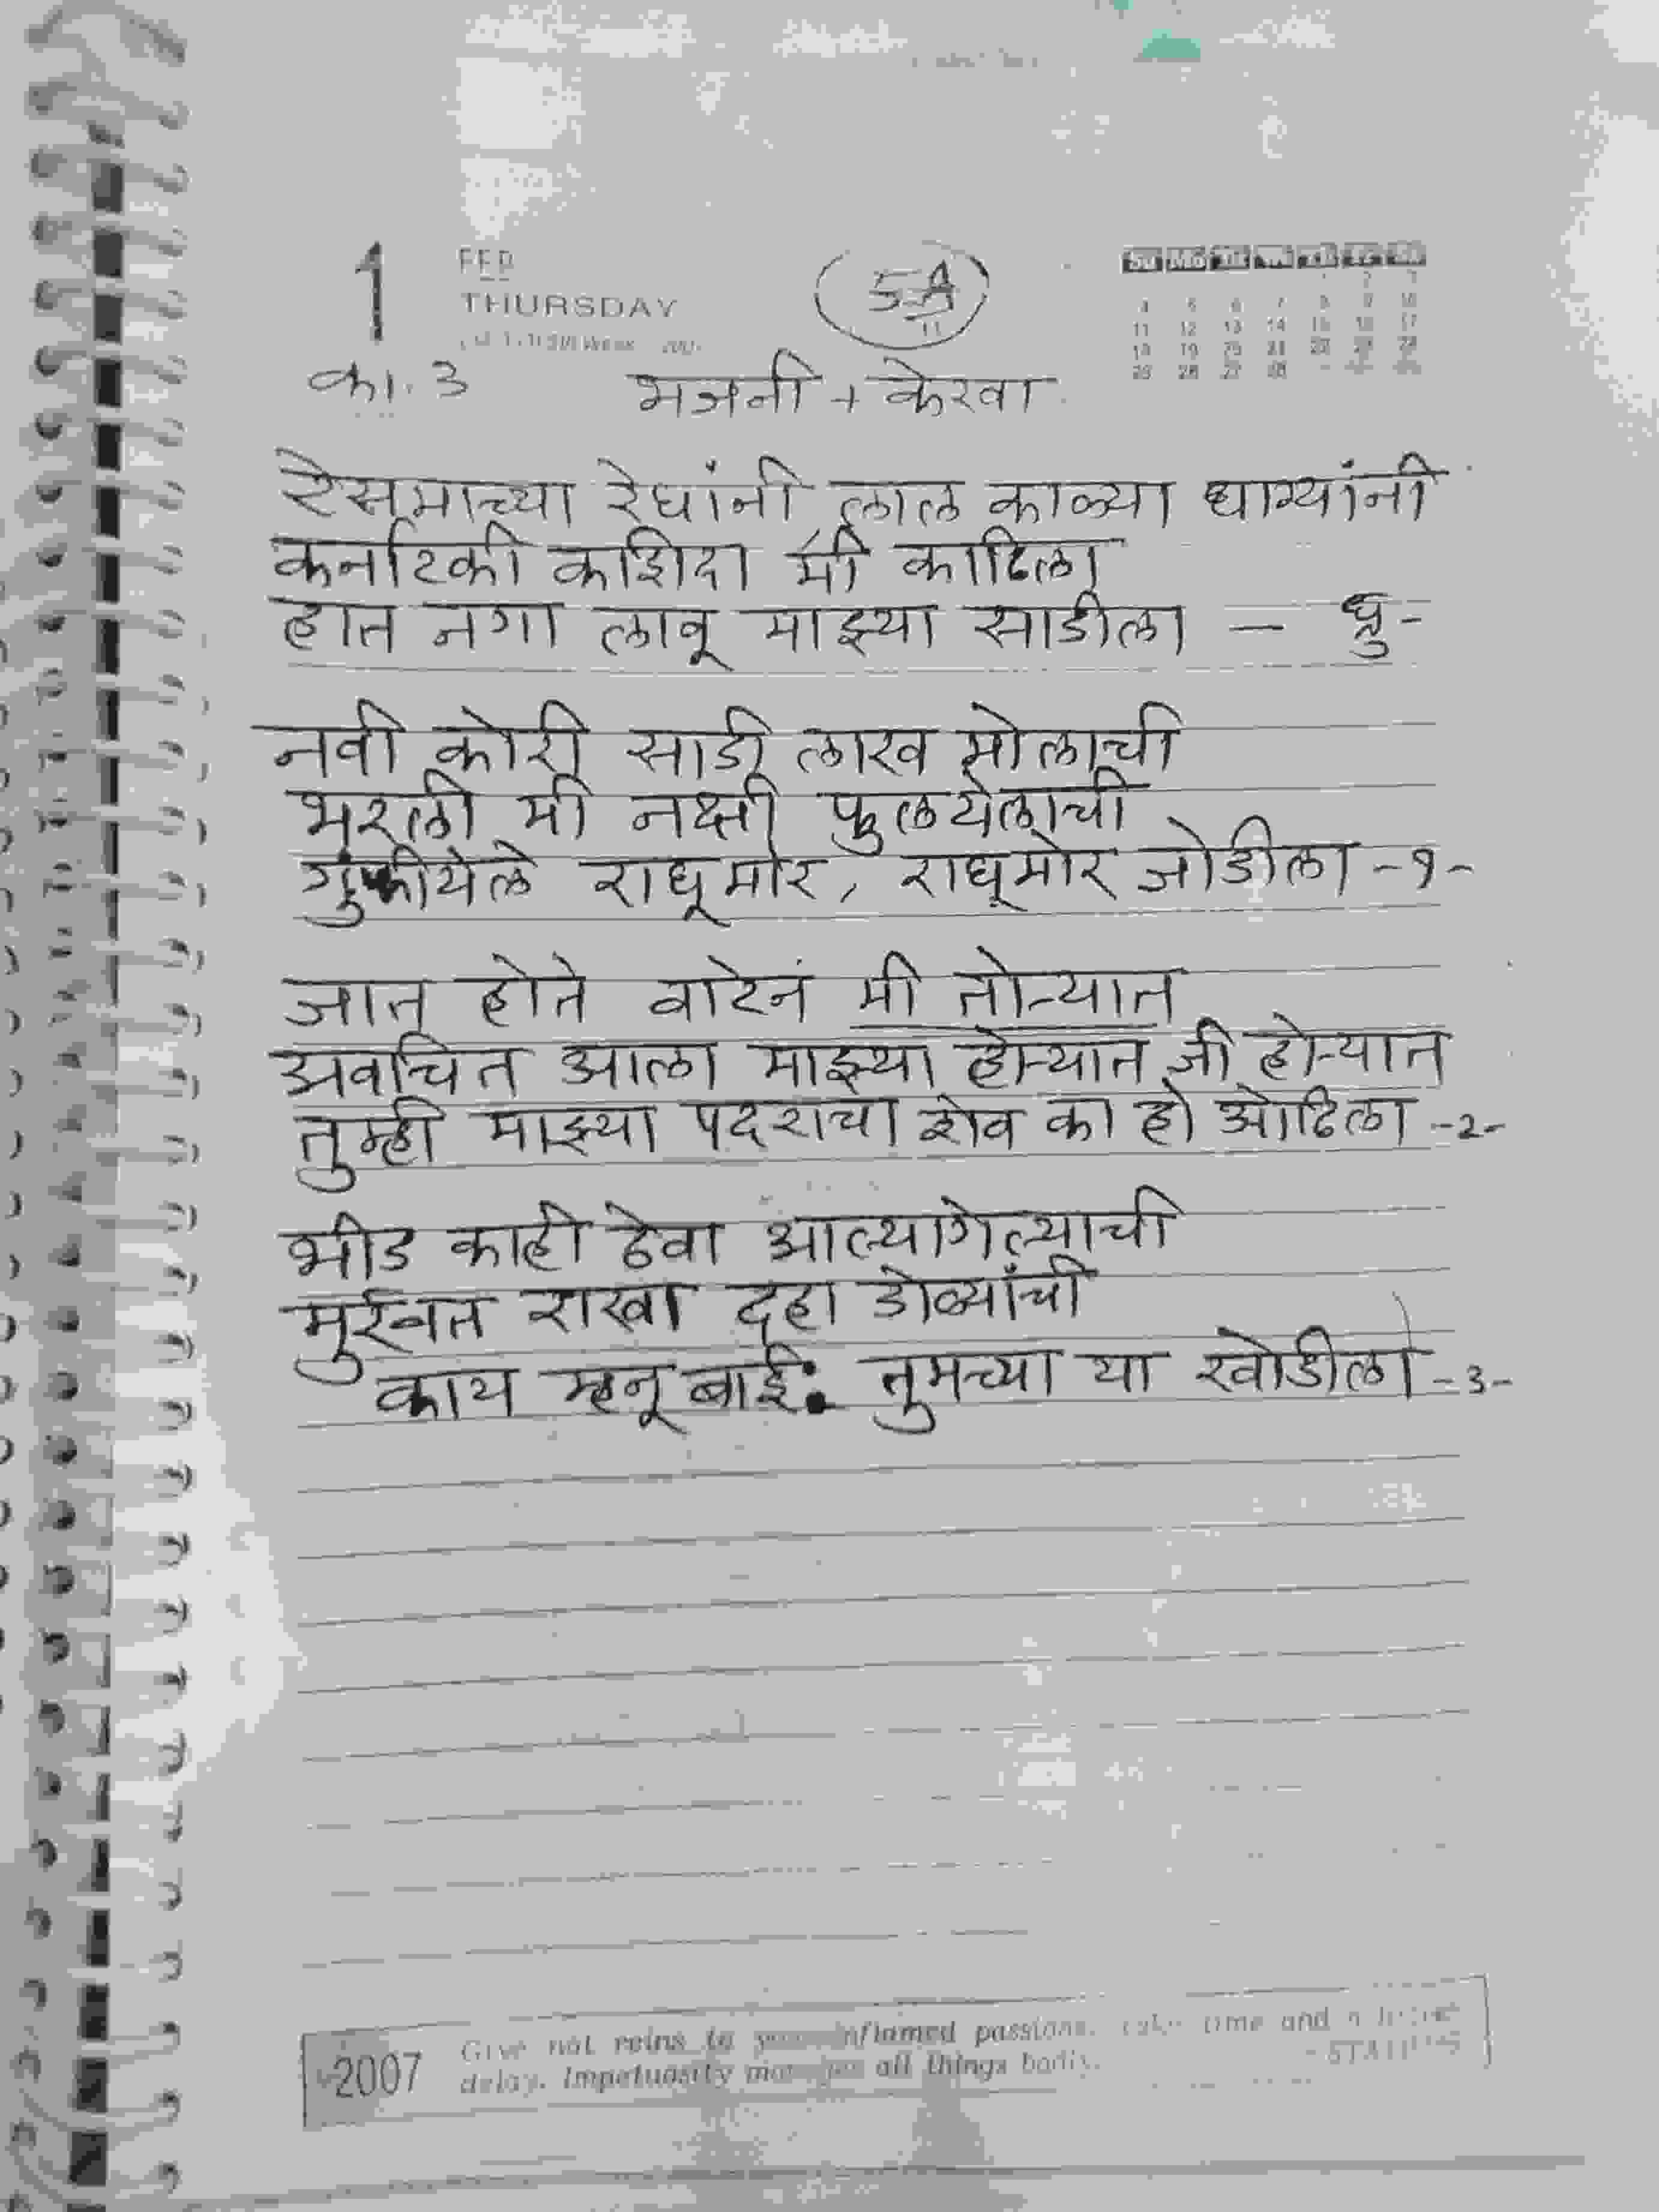 1 FEB
THURSDAY
Su Mo Tu We Th Fr Sa
1 2 3
4 5 6 7 8 9 10
11 12 13 14 15 16 17
18 19 20 21 22 23 24
25 26 27 28
का. 3 भजनी + केरवा
रेसमाच्या रेघांनी लाल काळ्या धाग्यांनी
कर्नाटकी कशिदा मी काढिला
हात नगा लावू माझ्या साडीला — ध्रु -
नवी कोरी साडी लाख मोलाची
भरली मी नक्षी फुलयेलाची
राघूमोर, राघूमोर जोडीला - १ -
जात होते वाटेनं मी तोऱ्यात
अवचित आला माझ्या होऱ्यात जी होऱ्यात
तुम्ही माझ्या पदराचा शेव का हो ओढिला - २ -
भीड काही ठेवा आल्यागेल्याची
मुर्खत राखा दहा डोळ्यांची
काय म्हनू बाई: तुमच्या या खोडीला - ३ -
2007 Give not reins to your inflamed passions. take time and a little
delay. Impetuosity manages all things badly.